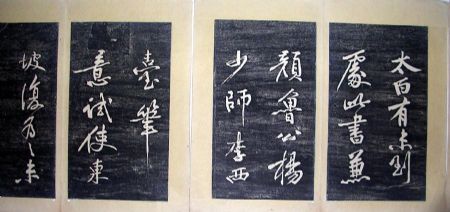 太白有未到
處此書兼
顏魯公楊
少師李西
臺筆
意試使東
坡復為之未